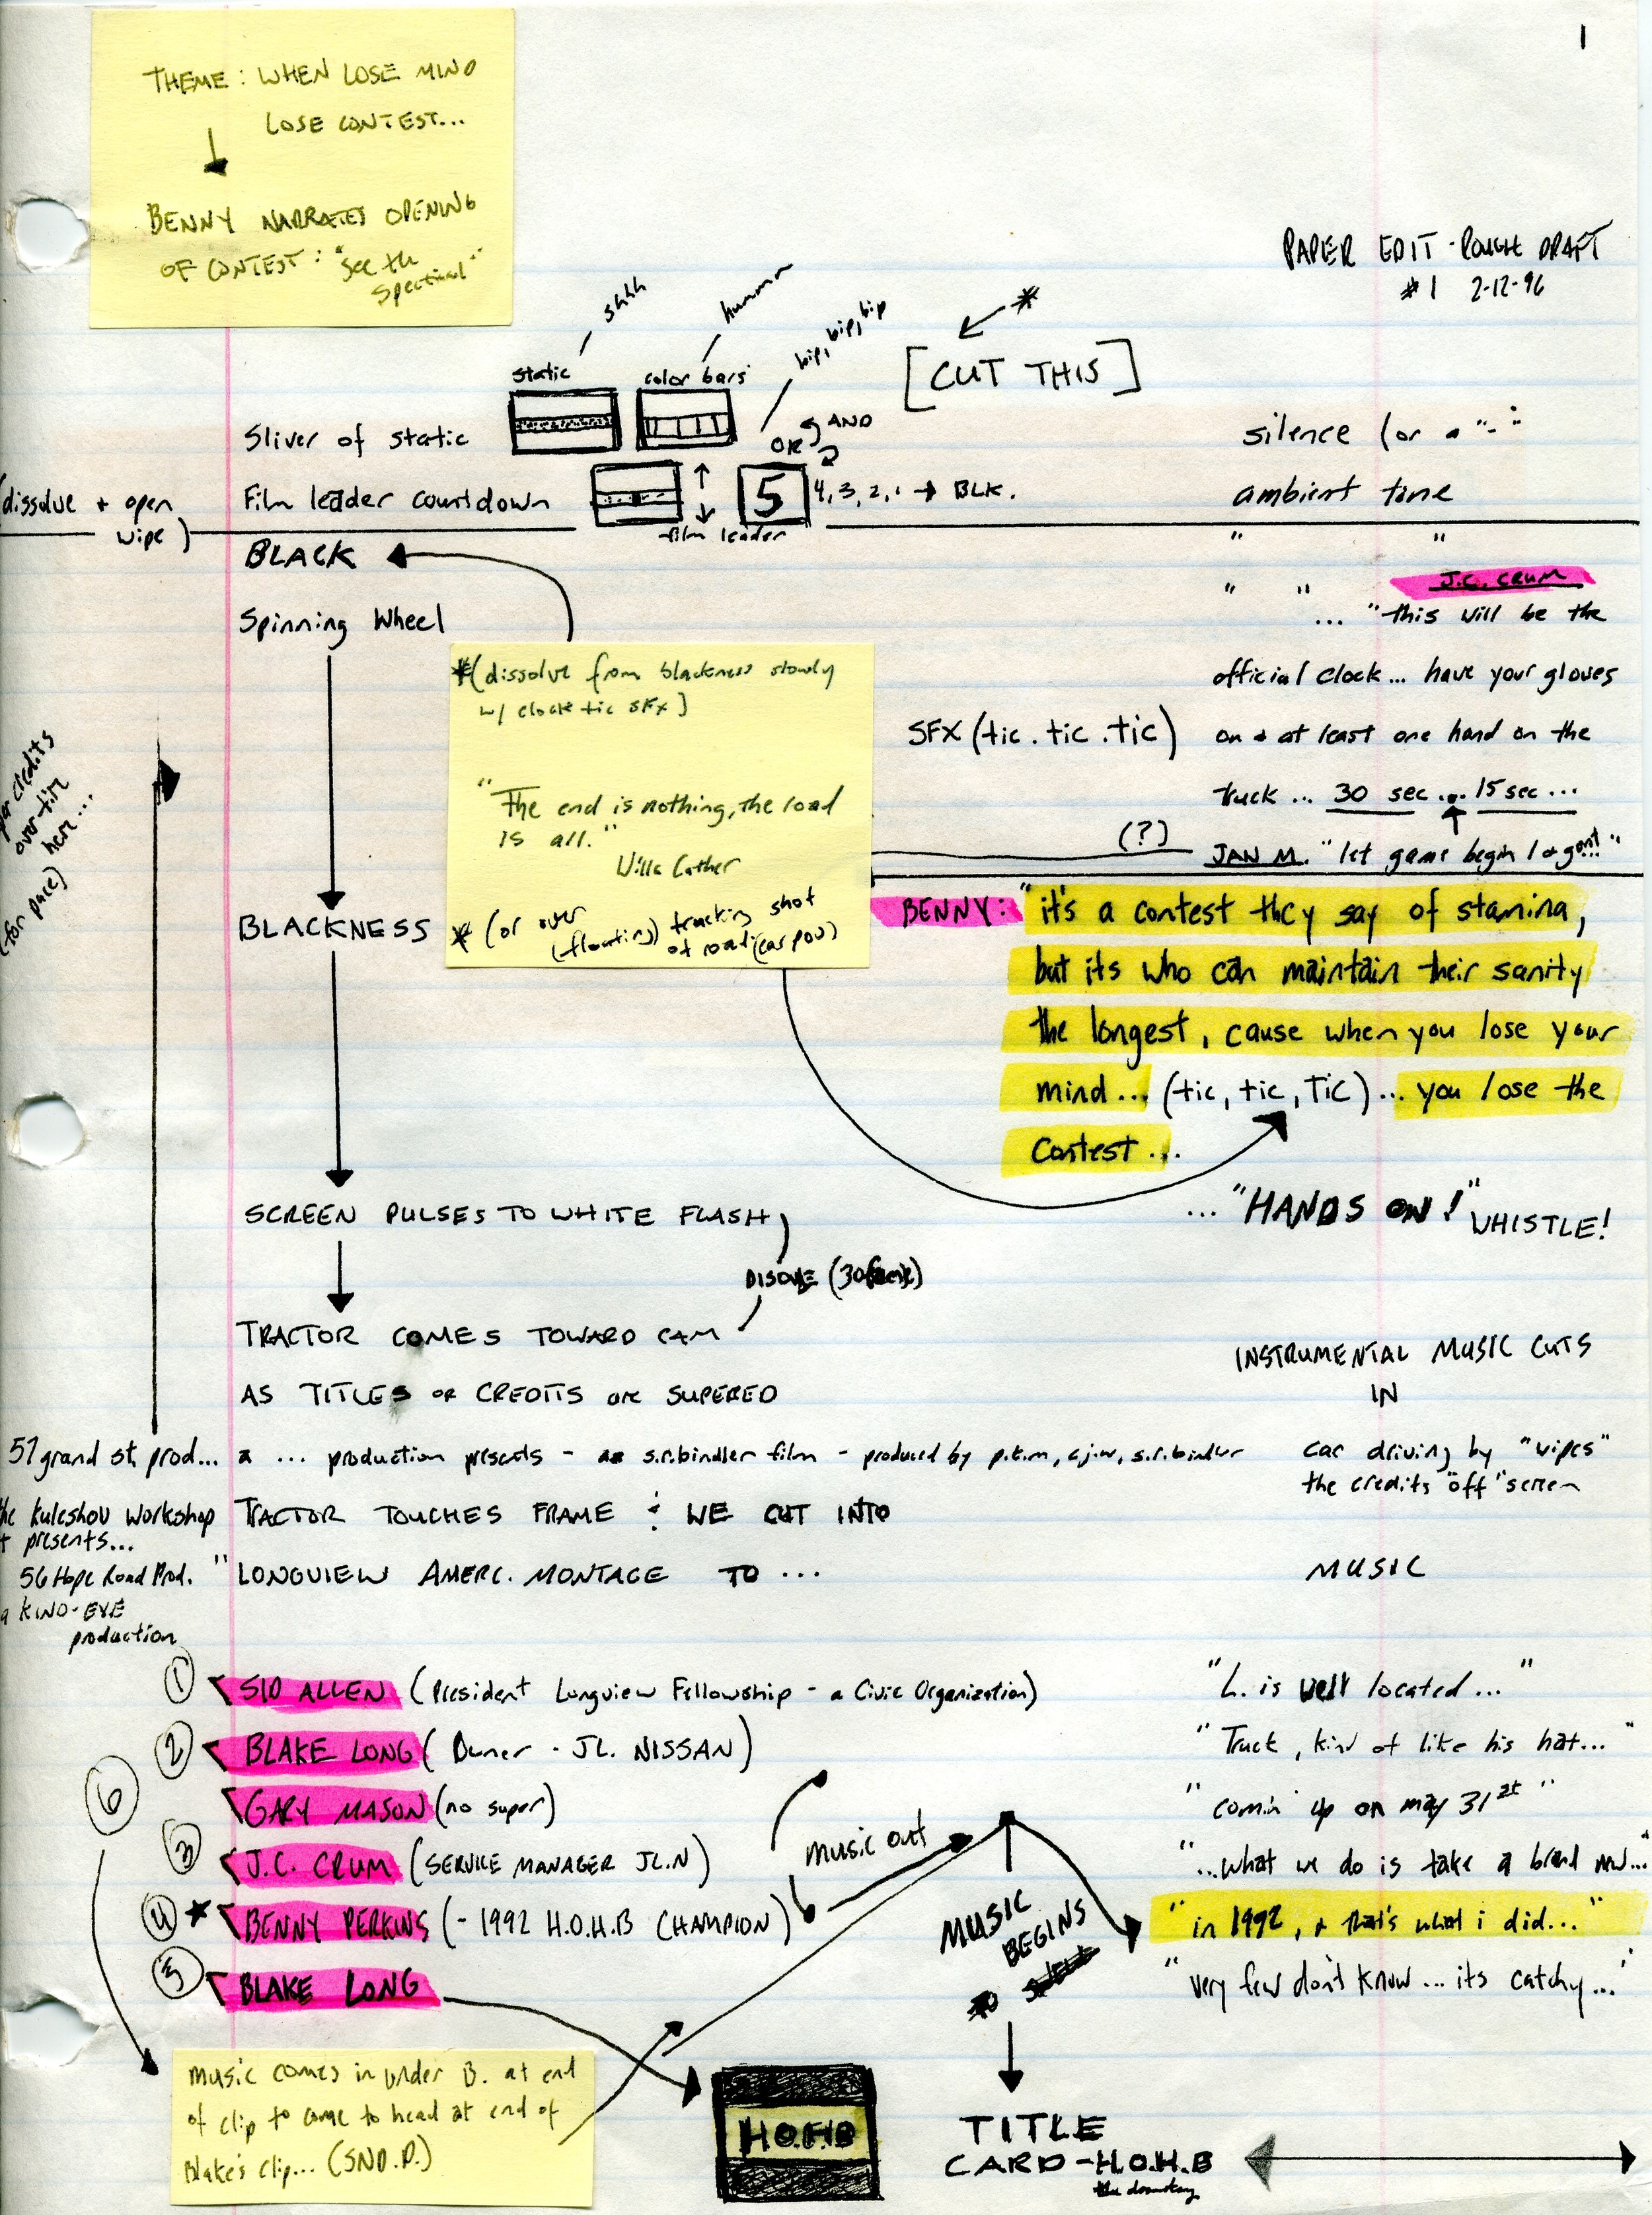 1
THEME: WHEN LOSE MIND
LOSE CONTEST...
BENNY NARRATES OPENING
OF CONTEST: "See the
PAPER EDIT - ROUGH DRAFT
#1 2-12-96
shhh
humm
bip, bip, bip
*
[CUT THIS]
static
color bars
Sliver of static
OR AND
silence (or a "-"
(dissolve + open
wipe)
Film leader countdown
5
4, 3, 2, 1 → BLK.
film leader
ambient tone
BLACK
" "
" "
J.C. CRUM
Spinning Wheel
... "this will be the
official clock... have your gloves
SFX (tic. tic. tic)
on + at least one hand on the
truck... 30 sec... 15 sec...
(?)
JAN M. "let game begin
*(dissolve from blackness slowly
w/ clock tic SFX)
"The end is nothing, the road
is all."
Willa Cather
* (or over
(floating) tracking shot
of road (car pov)
credits
over title
here...
(for pace)
BLACKNESS
BENNY: "it's a contest they say of stamina,
but its who can maintain their sanity
the longest, cause when you lose your
mind... (tic, tic, TIC)... you lose the
contest...
SCREEN PULSES TO WHITE FLASH
... "HANDS ON!" WHISTLE!
TRACTOR COMES TOWARD CAM
AS TITLES or CREDITS are SUPERED
INSTRUMENTAL MUSIC CUTS
IN
57 grand st. prod... a ... production presents - s.r.bindler film - produced by p.t.m, c.j.w, s.r.bindler
car driving by "wipes"
the credits "off" screen
the Kuleshov Workshop
presents...
56 Hope Road Prod.
a KINO-EYE
production
TRACTOR TOUCHES FRAME & WE CUT INTO
" LONGVIEW AMERC. MONTAGE TO...
MUSIC
1 SID ALLEN (President Longview Fellowship - a Civic Organization)
"L. is well located..."
2 BLAKE LONG (Owner - JL. NISSAN)
"Truck, kind of like his hat..."
6
GARY MASON (no super)
"comin' up on may 31st"
3 J.C. CRUM (SERVICE MANAGER JL.N)
music out
"...what we do is take a brand new..."
4 * BENNY PERKINS (- 1992 H.O.H.B CHAMPION)
MUSIC
BEGINS
"in 1992, + that's what i did..."
5 BLAKE LONG
"very few don't know... its catchy..."
music comes in under B. at end
of clip to come to head at end of
Blake's clip... (SND.D.)
H.O.H.B
TITLE
CARD - H.O.H.B